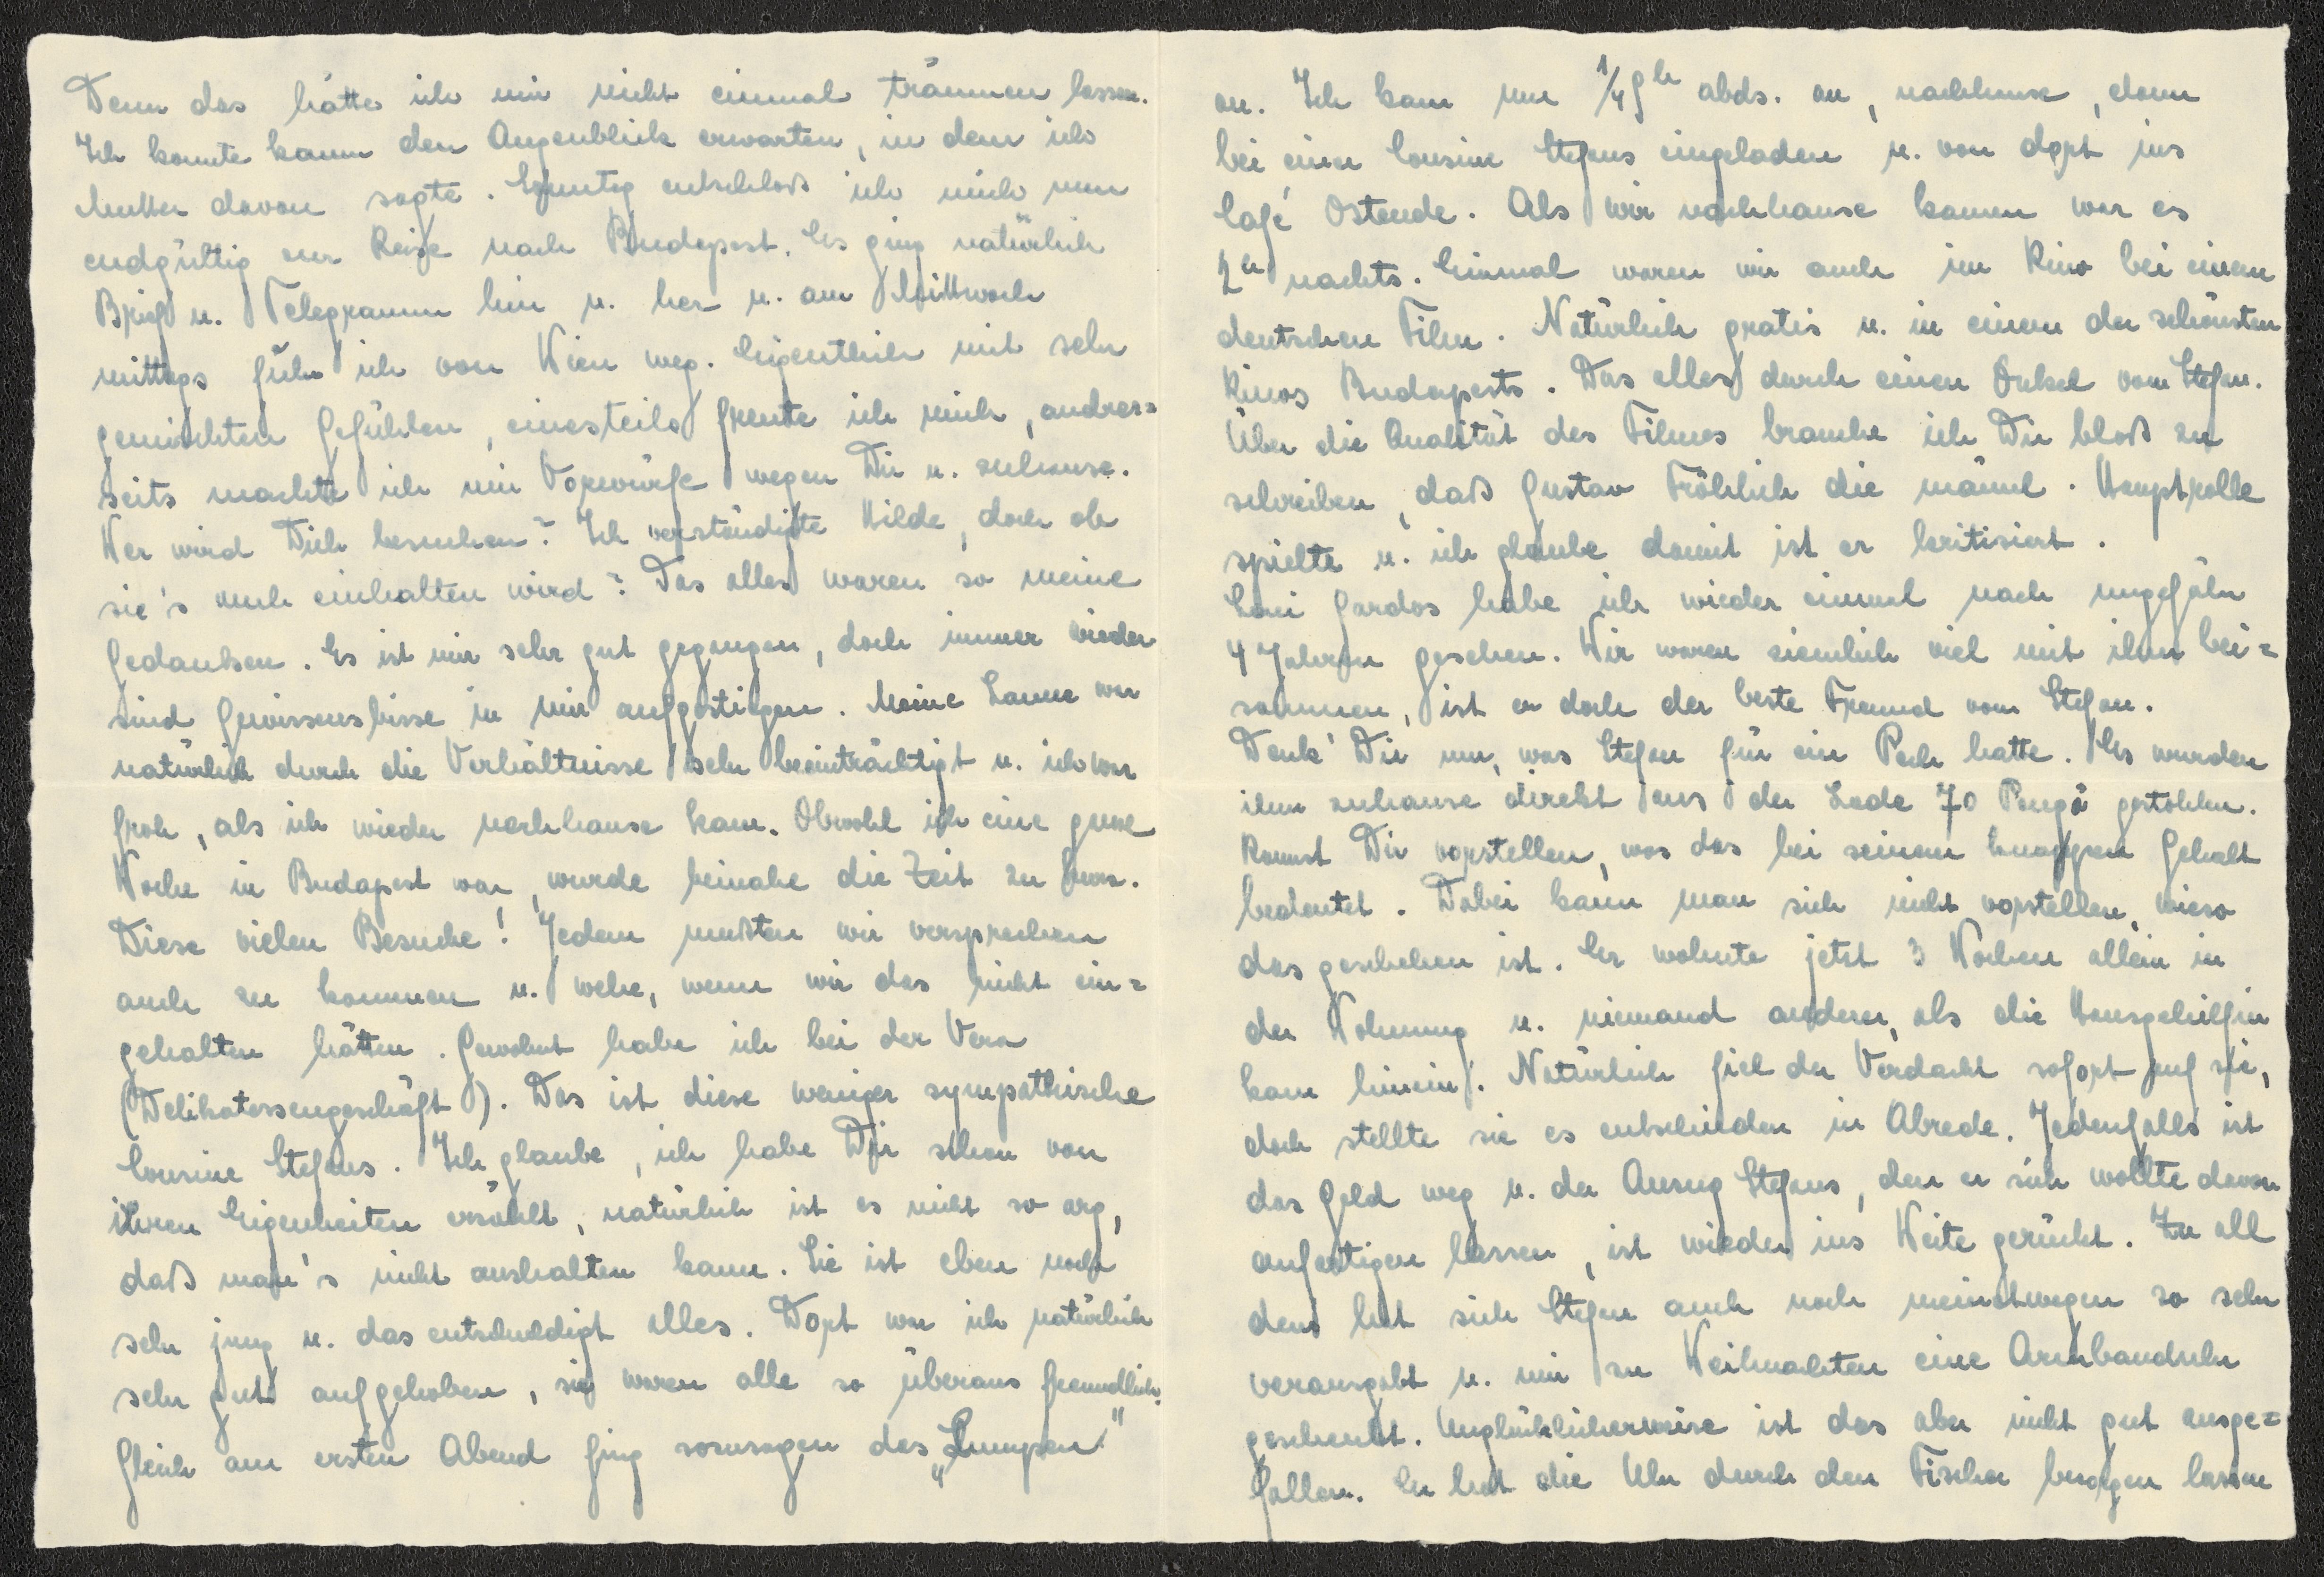 Denn das hätte ich mir nicht einmal träumen lassen.
Ich konnte kaum den Augenblick erwarten, in dem ich
Mutter davon sagte. Sonntag entschloß ich mich nun
endgültig zur Reise nach Budapest. Es ging natürlich
Brief u. Telegramm hin u. her u. am Mittwoch
mittags fuhr ich von Wien weg. Eigentlich mit sehr
gemischten Gefühlen, einesteils freute ich mich, andrer=
seits machte ich mir Vorwürfe wegen Dir u. zuhause.
Wer wird Dich besuchen? Ich verständigte Hilde, doch ob
sie's auch einhalten wird? Das alles waren so meine
Gedanken. Es ist mir sehr gut gegangen, doch immer wieder
sind Gewissensbisse in mir aufgestiegen. Meine Laune war
natürlich durch die Verhältnisse sehr beeinträchtigt u. ich war
froh, als ich wieder nachhause kam. Obwohl ich eine ganze
Woche in Budapest war, wurde beinahe die Zeit zu kurz.
Diese vielen Besuche! Jedem mußten wir versprechen
auch zu kommen u. wehe, wenn wir das nicht ein=
gehalten hätten. Gewohnt habe ich bei der Vera
(Delikatessengeschäft). Das ist diese weniger sympathische
Cousine Stefans. Ich glaube, ich habe Dir schon von
ihren Eigenheiten erzählt, natürlich ist es nicht so arg,
daß man's nicht aushalten kann. Sie ist eben noch
sehr jung u. das entschuldigt alles. Dort war ich natürlich
sehr gut aufgehoben, sie waren alle so überaus freundlich.
Gleich am ersten Abend fing sozusagen das „Lumpen"
an. Ich kam um 1/4 9h abds. an, nachhause, dann
bei einer Cousine Stefans eingeladen u. von dort ins
Café Ostende. Als wir nachhause kamen war es
2h nachts. Einmal waren wir auch im Kino bei einem
deutschen Film. Natürlich gratis u. in einem der schönsten
Kinos Budapests. Das alles durch einen Onkel vom Stefan.
Über die Qualität des Filmes brauche ich Dir bloß zu
schreiben, daß Gustav Fröhlich die männl. Hauptrolle
spielte u. ich glaube damit ist er kritisiert.
Laci Gardos habe ich wieder einmal nach ungefähr
4 Jahren gesehen. Wir waren ziemlich viel mit ihm bei=
sammen, ist er doch der beste Freund vom Stefan.
Denk' Dir nur, was Stefan für ein Pech hatte. Es wurden
ihm zuhause direkt aus der Lade 70 Pengö gestohlen.
Kannst Dir vorstellen, was das bei seinem knappen Gehalt
bedeutet. Dabei kann man sich nicht vorstellen, wieso
das geschehen ist. Er wohnte jetzt 3 Wochen allein in
der Wohnung u. niemand anderer, als die Hausgehilfin
kam hinein. Natürlich fiel der Verdacht sofort auf sie,
doch stellte sie es entschieden in Abrede. Jedenfalls ist
das Geld weg u. der Anzug Stefans, den er sich wollte davon
anfertigen lassen, ist wieder ins Weite gerückt. Zu all
dem hat sich Stefan auch noch meinetwegen so sehr
verausgabt u. mir zu Weihnachten eine Armbanduhr
geschenkt. Unglücklicherweise ist das aber nicht gut ausge=
fallen. Er hat die Uhr durch den Fischer besorgen lassen